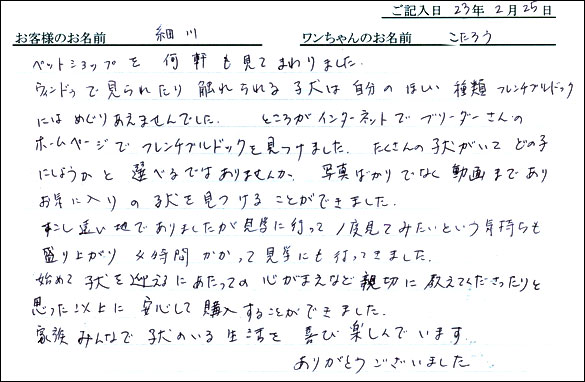 ご記入日 23年 2月 25日
お客様のお名前 細川 ワンちゃんのお名前 こたろう
ペットショップを 何軒も見てまわりました.
ウィンドゥで見られたり 触れられる子犬は 自分の ほしい 種類 フレンチブルドック
には めぐりあえませんでした. ところが インターネットで ブリーダーさんの
ホームページで フレンチブルドックを見つけました. たくさんの子犬がいて どの子
にしようかと 選べるではありませんか. 写真ばかりでなく 動画まであり
お気に入り の 子犬を見つけることができました.
すこし遠い地でありましたが見学に行って 1度見てみたいという気持ちも
盛り上がり 4時間 かかって見学にも行ってきました.
始めて 子犬を迎えるにあたっての 心がまえなど 親切に 教えてくださったりと
思った以上に 安心して購入することができました.
家族みんなで 子犬のいる 生活を 喜び 楽しんでいます.
ありがとうございました